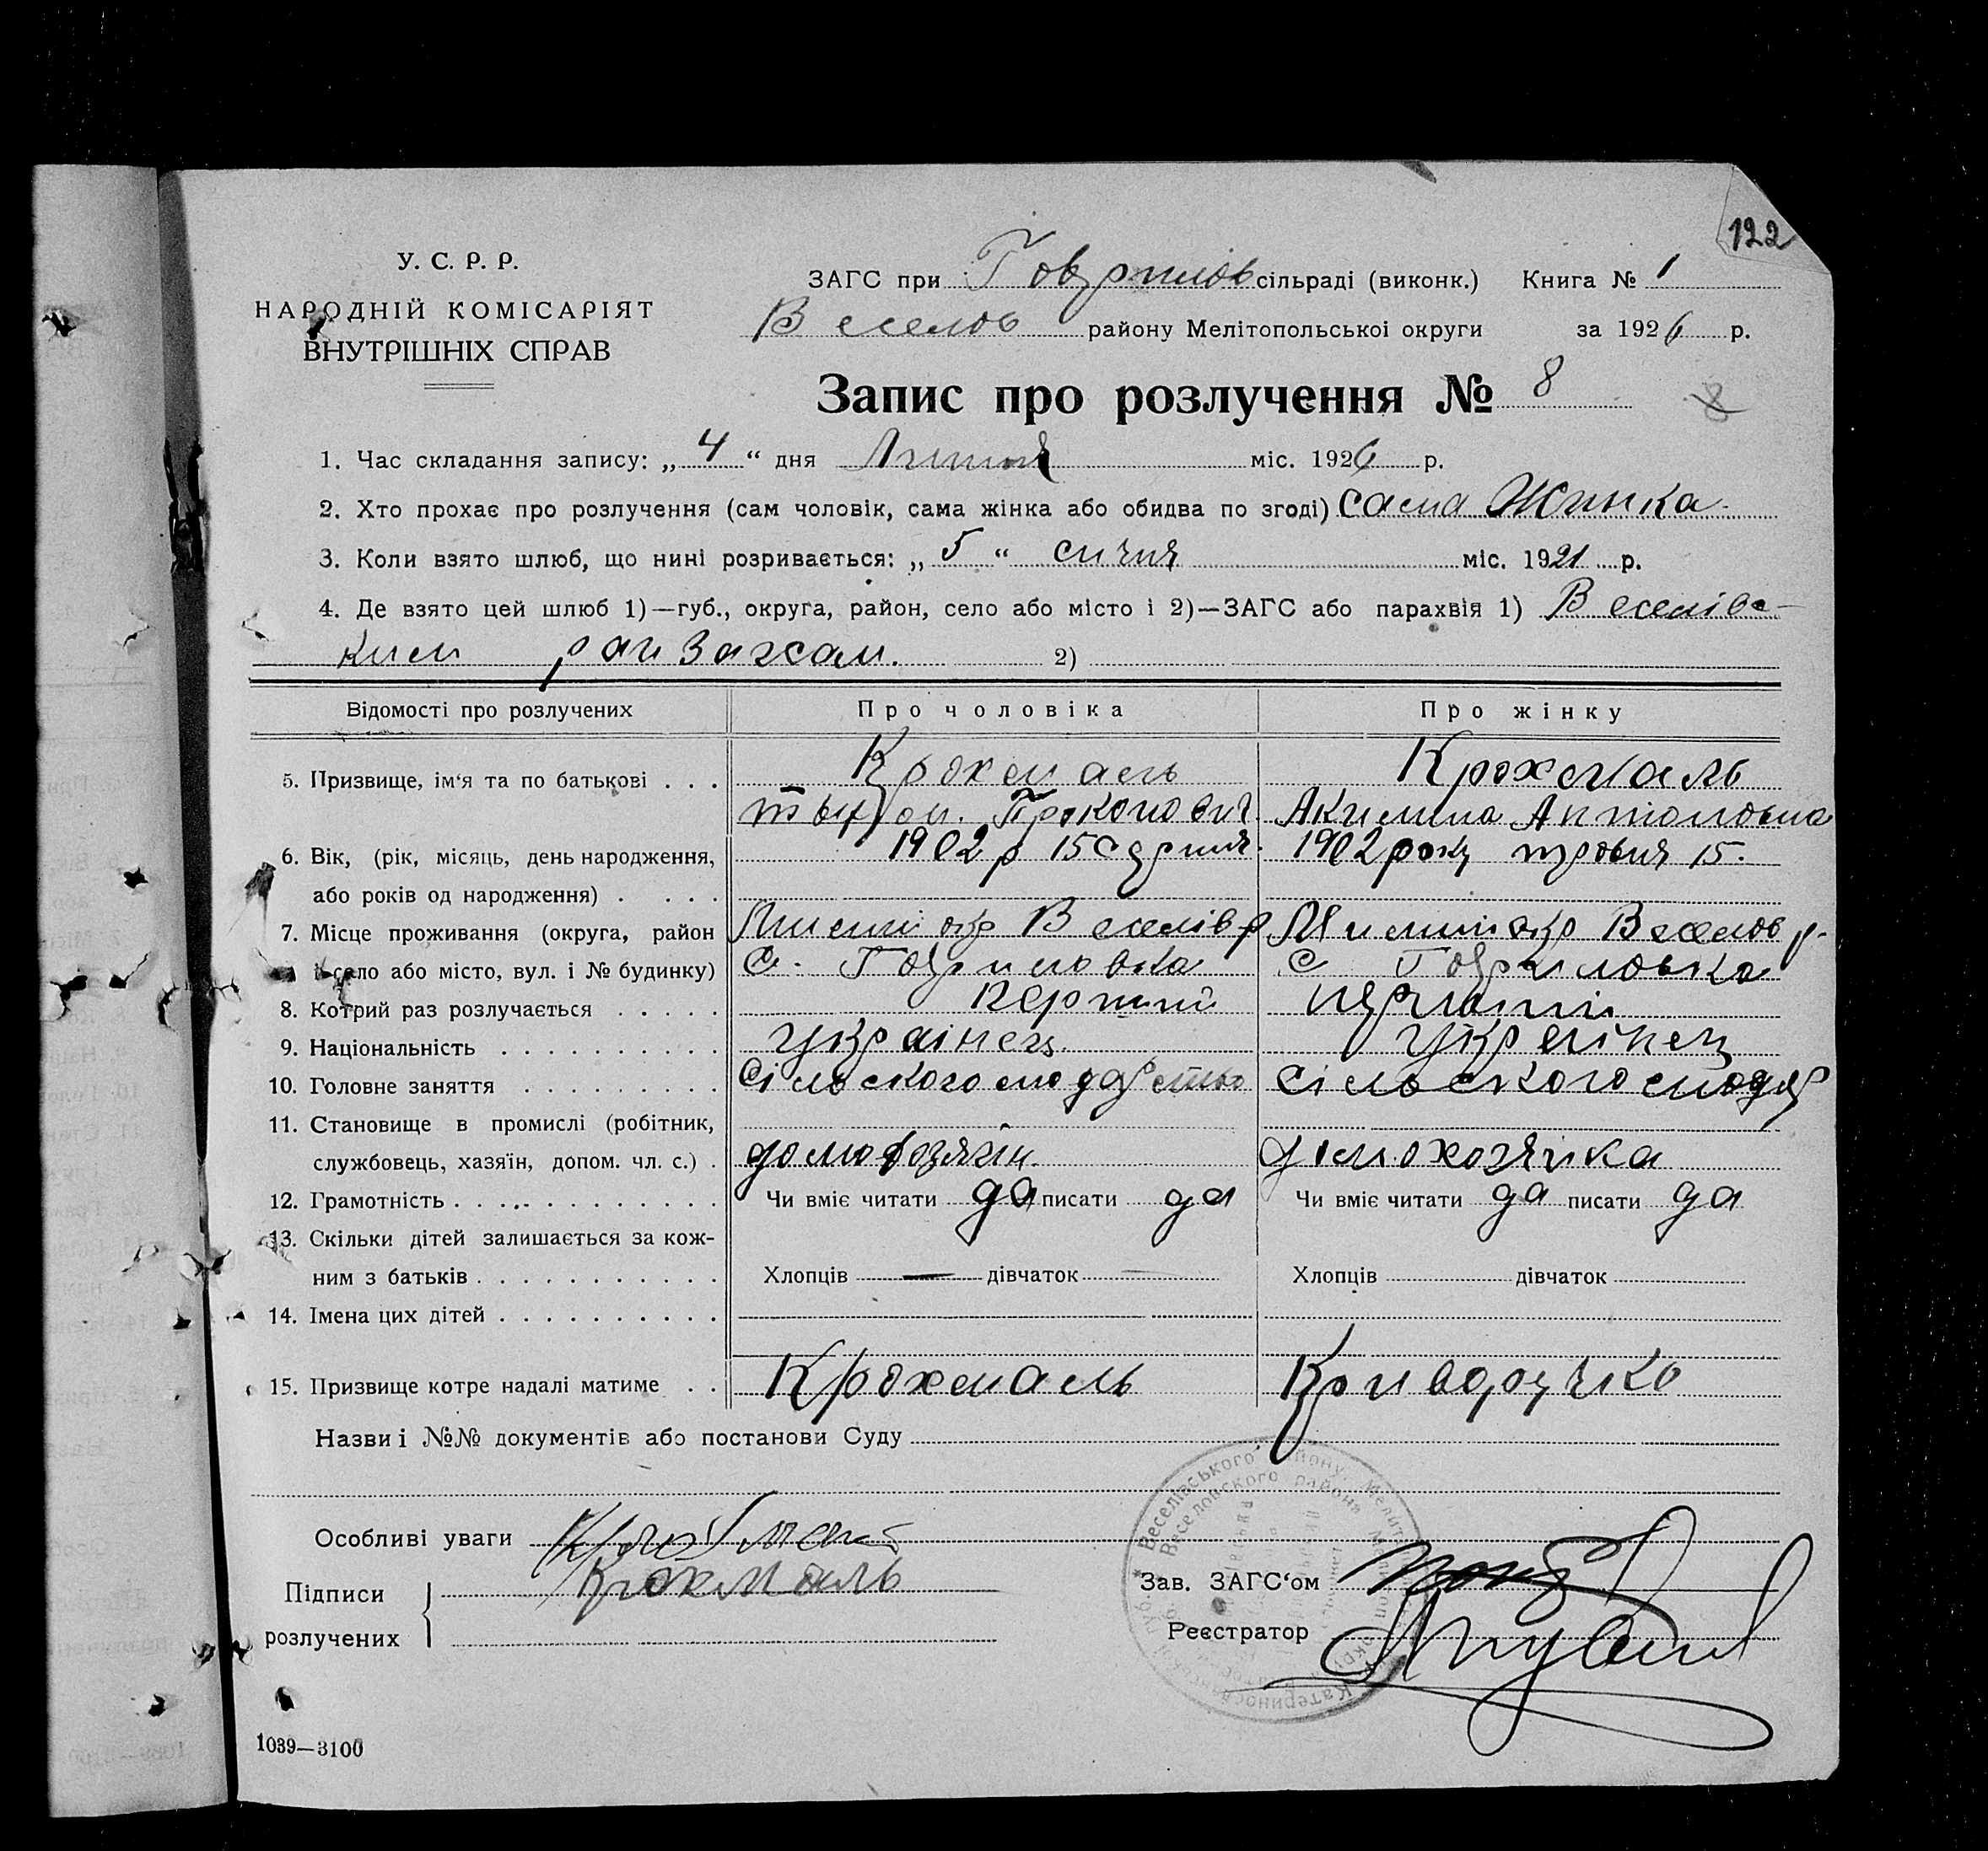 122
У. С. Р. Р.
НАРОДНІЙ КОМІСАРІЯТ
ВНУТРІШНІХ СПРАВ
ЗАГС при Гаврилов сільраді (виконк.) Книга № 1
Веселов району Мелітопольскоі округи за 1926 р.
Запис про розлучення № 8
8
1. Час складання запису: „ 4 “ дня Липня міс. 1926 р.
2. Хто прохає про розлучення (сам чоловік, сама жінка або обидва по згоді) сама Жинка
3. Коли взято шлюб, що нині розривається: „ 5 “ сичня міс. 1921 р.
4. Де взято цей шлюб 1)—губ., округа, район, село або місто і 2)—ЗАГС або парахвія 1) Веселівс-
ким рай Загсам. 2)
Відомості про розлучених Про чоловіка Про жінку
5. Призвище, ім‘я та по батькові . . . Крохмаль Крохмаль
Прокопович Акилина Антоновна
6. Вік, (рік, місяць, день народження, 1902 р 15 серпня 1902 року травня 15.
або років од народження) . . . .
7. Місце проживання (округа, район Веселів р Веселов р.
і село або місто, вул. і № будинку) с. Гавриловка с Гавриловка
8. Котрий раз розлучається . . . . . перший перший
9. Національність . . . . . . . . . . українец українец
10. Головне заняття . . . . . . . . . сільськогосподарство сільськогосподар
11. Становище в промислі (робітник,
службовець, хазяїн, допом. чл. с.) . домохозяїн. домохозяйка
12. Грамотність . . . . . . . . . . . . Чи вміє читати да писати да Чи вміє читати да писати да
13. Скільки дітей залишається за кож-
ним з батьків . . . . . . . . . . . Хлопців — дівчаток — Хлопців дівчаток
14. Імена цих дітей . . . . . . . . . .
15. Призвище котре надалі матиме . . Крохмаль Криворучко
Назви і №№ документів або постанови Суду
Особливі уваги
Підписи Крохмаль Зав. ЗАГС‘ом
розлучених Реєстратор
Веселівського району Меліт
Веселовского района Мелитоп
Катеринославської губ.
1039—3100